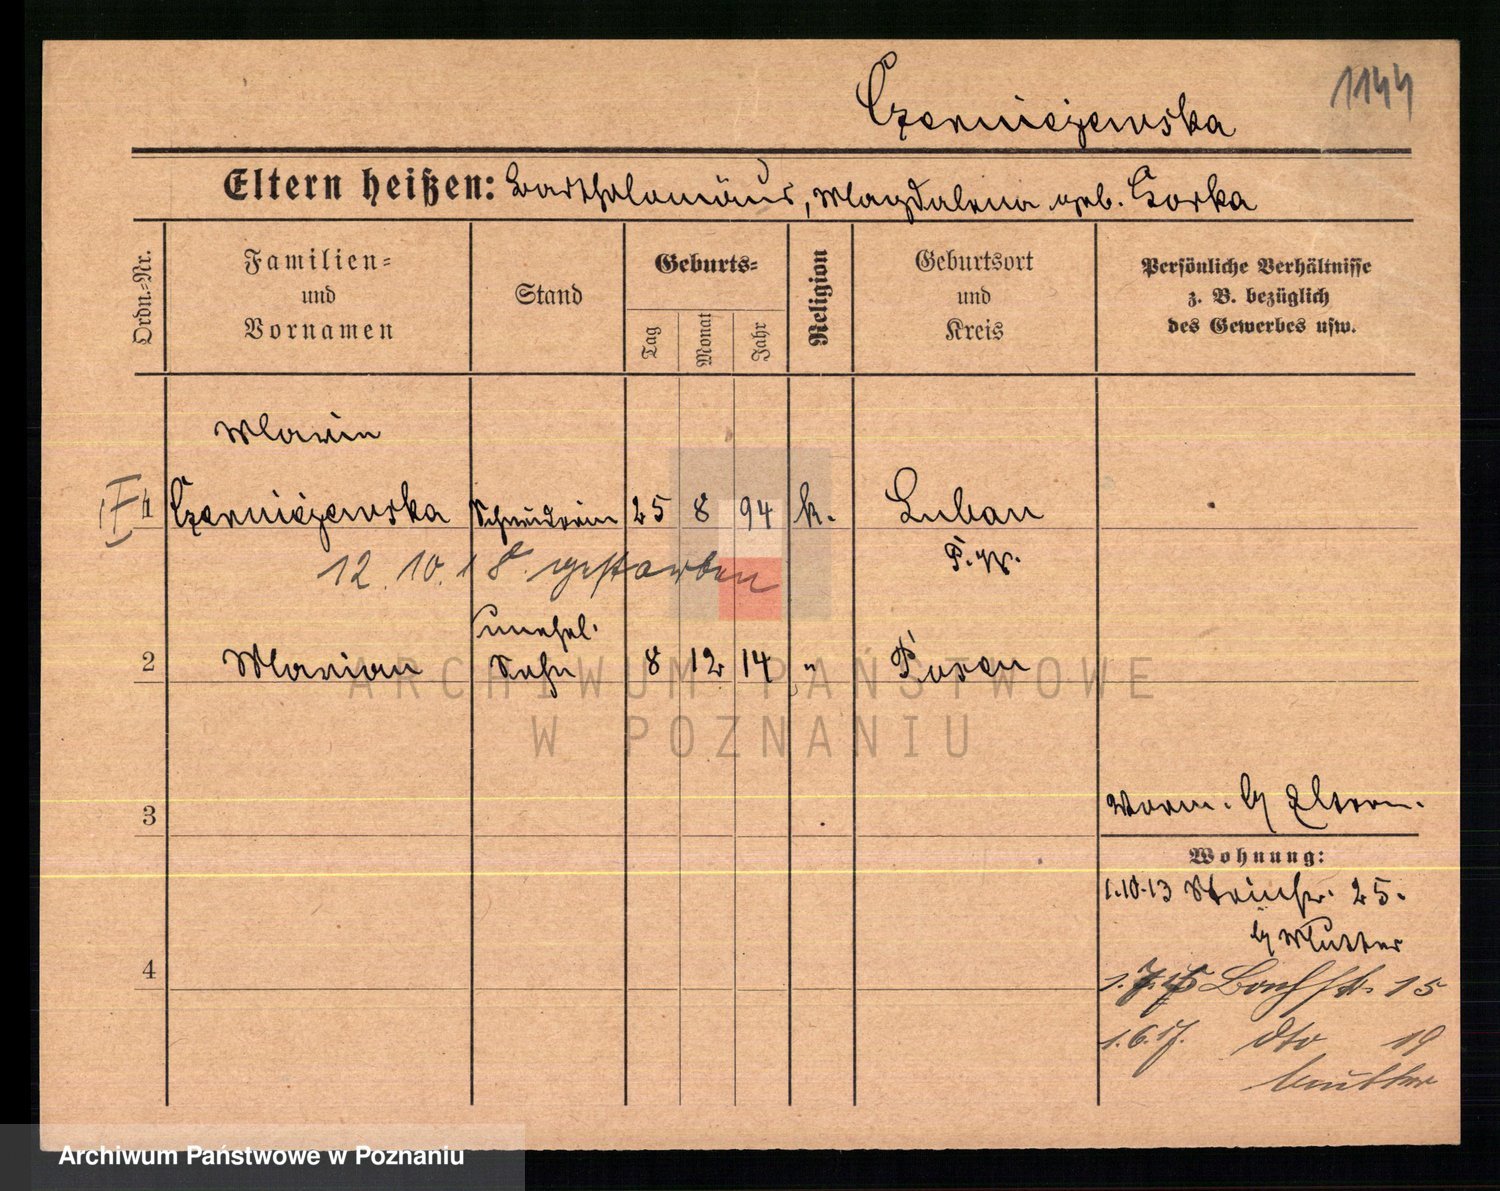 1144
Czerniejewska
Eltern heißen: Bartholomäus, Magdalena geb. Gorka
Ordn.-Nr.
Familien-
und
Vornamen
Stand
Geburts-
Tag
Monat
Jahr
Religion
Geburtsort
und
Kreis
Persönliche Verhältnisse
z. B. bezüglich
des Gewerbes usw.
Marie
1 Czerniejewska Schneiderin 25 8 94 k. Luban
P. W.
12.10.18. gestorben
unehel.
2 Marian Sohn 8 12 14 " Posen
3
Vorm. by Eltern.
Wohnung:
1.10.13 25.
by Mutter
4
1.7.15 15
1.6.17. dto 19
Mutter
ARCHIWUM PAŃSTWOWE
W POZNANIU
Archiwum Państwowe w Poznaniu